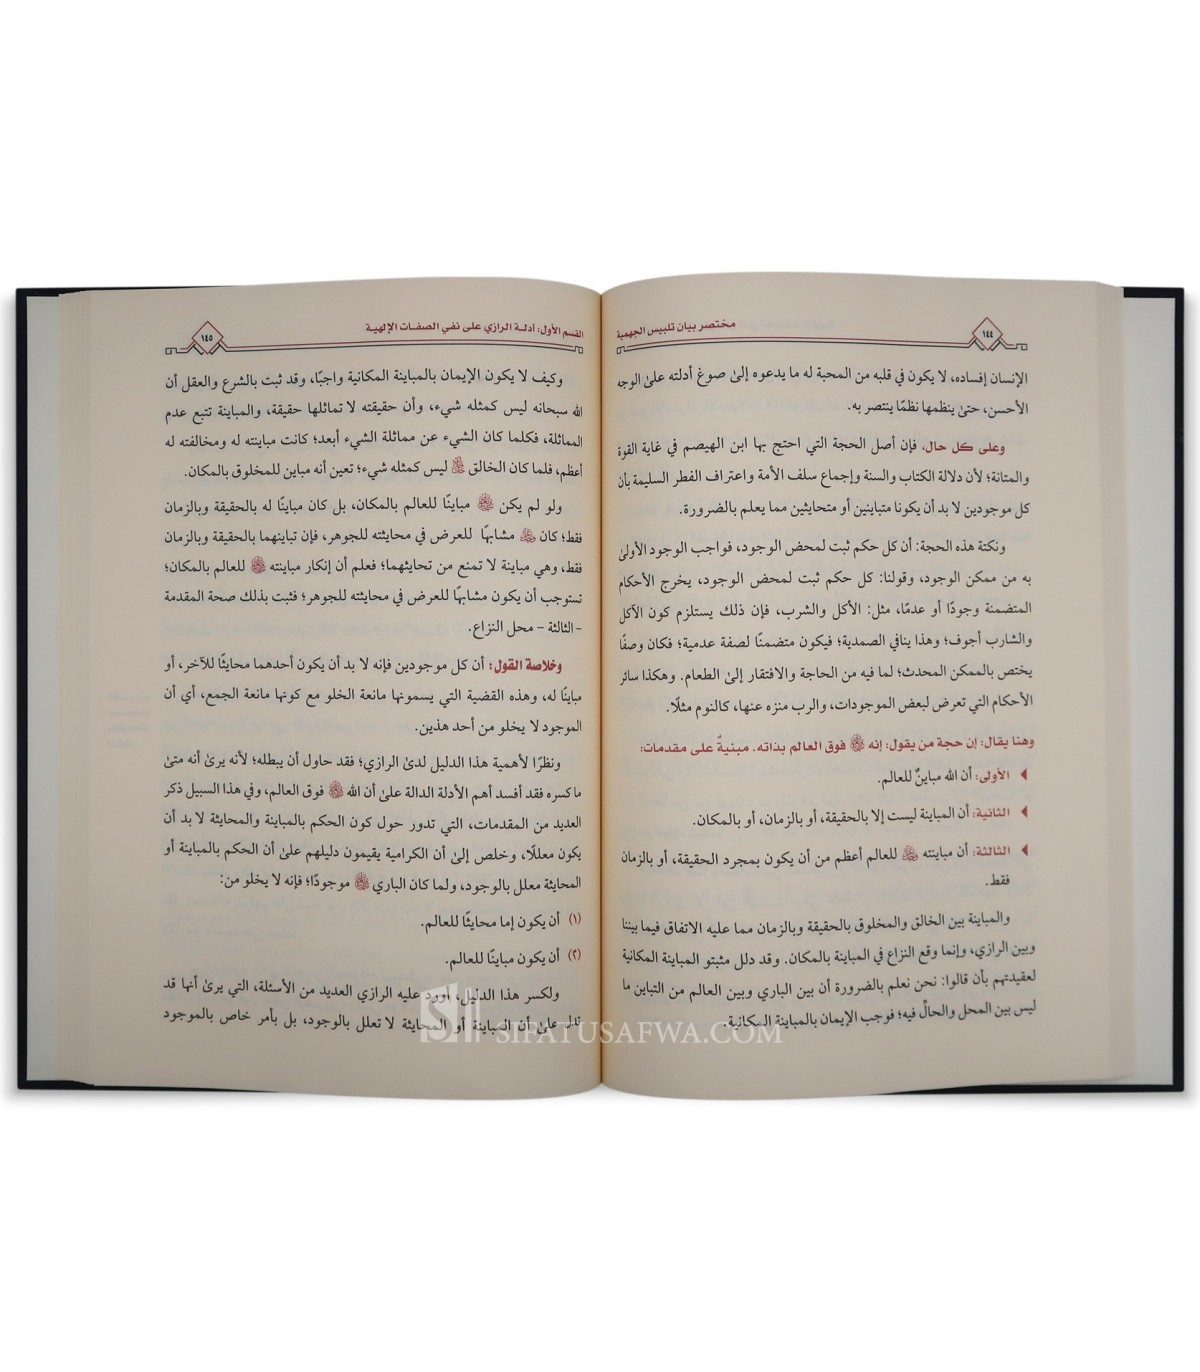 مختصر بيان تلبيس الجهمية
١٤٤
الإنسان إفساده، لا يكون في قلبه من المحبة له ما يدعوه إلىٰ صوغ أدلته علىٰ الوجه
الأحسن، حتىٰ ينظمها نظمًا ينتصر به.
وعلى كل حال، فإن أصل الحجة التي احتج بها ابن الهيصم في غاية القوة
والمتانة؛ لأن دلالة الكتاب والسنة وإجماع سلف الأمة واعتراف الفطر السليمة بأن
كل موجودين لا بد أن يكونا متباينين أو متحايثين مما يعلم بالضرورة.
ونكتة هذه الحجة: أن كل حكم ثبت لمحض الوجود، فواجب الوجود الأولىٰ
به من ممكن الوجود، وقولنا: كل حكم ثبت لمحض الوجود، يخرج الأحكام
المتضمنة وجودًا أو عدمًا، مثل: الأكل والشرب، فإن ذلك يستلزم كون الآكل
والشارب أجوف؛ وهذا ينافي الصمدية؛ فيكون متضمنًا لصفة عدمية؛ فكان وصفًا
يختص بالممكن المحدث؛ لما فيه من الحاجة والافتقار إلىٰ الطعام. وهكذا سائر
الأحكام التي تعرض لبعض الموجودات، والرب منزه عنها، كالنوم مثلًا.
وهنا يقال: إن حجة من يقول: إنه ﷻ فوق العالم بذاته. مبنيةٌ على مقدمات:
الأولى: أن الله مباينٌ للعالم.
الثانية: أن المباينة ليست إلا بالحقيقة، أو بالزمان، أو بالمكان.
الثالثة: أن مباينته ﷻ للعالم أعظم من أن يكون بمجرد الحقيقة، أو بالزمان
فقط.
والمباينة بين الخالق والمخلوق بالحقيقة وبالزمان مما عليه الاتفاق فيما بيننا
وبين الرازي، وإنما وقع النزاع في المباينة بالمكان. وقد دلل مثبتو المباينة المكانية
لعقيدتهم بأن قالوا: نحن نعلم بالضرورة أن بين الباري وبين العالم من التباين ما
ليس بين المحل والحالِّ فيه؛ فوجب الإيمان بالمباينة المكانية.
القسم الأول: أدلة الرازي على نفي الصفات الإلهية
١٤٥
وكيف لا يكون الإيمان بالمباينة المكانية واجبًا، وقد ثبت بالشرع والعقل أن
الله سبحانه ليس كمثله شيء، وأن حقيقته لا تماثلها حقيقة، والمباينة تتبع عدم
المماثلة، فكلما كان الشيء عن مماثلة الشيء أبعد؛ كانت مباينته له ومخالفته له
أعظم، فلما كان الخالق ﷻ ليس كمثله شيء؛ تعين أنه مباين للمخلوق بالمكان.
ولو لم يكن ﷻ مباينًا للعالم بالمكان، بل كان مباينًا له بالحقيقة وبالزمان
فقط؛ كان ﷻ مشابهًا للعرض في محايثته للجوهر، فإن تباينهما بالحقيقة وبالزمان
فقط، وهي مباينة لا تمنع من تحايثهما؛ فعلم أن إنكار مباينته ﷻ للعالم بالمكان؛
تستوجب أن يكون مشابهًا للعرض في محايثته للجوهر؛ فثبت بذلك صحة المقدمة
- الثالثة - محل النزاع.
وخلاصة القول: أن كل موجودين فإنه لا بد أن يكون أحدهما محايثًا للآخر، أو
مباينًا له، وهذه القضية التي يسمونها مانعة الخلو مع كونها مانعة الجمع، أي أن
الموجود لا يخلو من أحد هذين.
ونظرًا لأهمية هذا الدليل لدىٰ الرازي؛ فقد حاول أن يبطله؛ لأنه يرىٰ أنه متىٰ
ما كسره فقد أفسد أهم الأدلة الدالة علىٰ أن الله ﷻ فوق العالم، وفي هذا السبيل ذكر
العديد من المقدمات، التي تدور حول كون الحكم بالمباينة والمحايثة لا بد أن
يكون معللًا، وخلص إلىٰ أن الكرامية يقيمون دليلهم علىٰ أن الحكم بالمباينة أو
المحايثة معلل بالوجود، ولما كان الباري ﷻ موجودًا؛ فإنه لا يخلو من:
(١) أن يكون إما محايثًا للعالم.
(٢) أن يكون مباينًا للعالم.
ولكسر هذا الدليل، أورد عليه الرازي العديد من الأسئلة، التي يرىٰ أنها قد
تدل علىٰ أن المباينة أو المحايثة لا تعلل بالوجود، بل بأمر خاص بالموجود
SIFATUSAFWA.COM